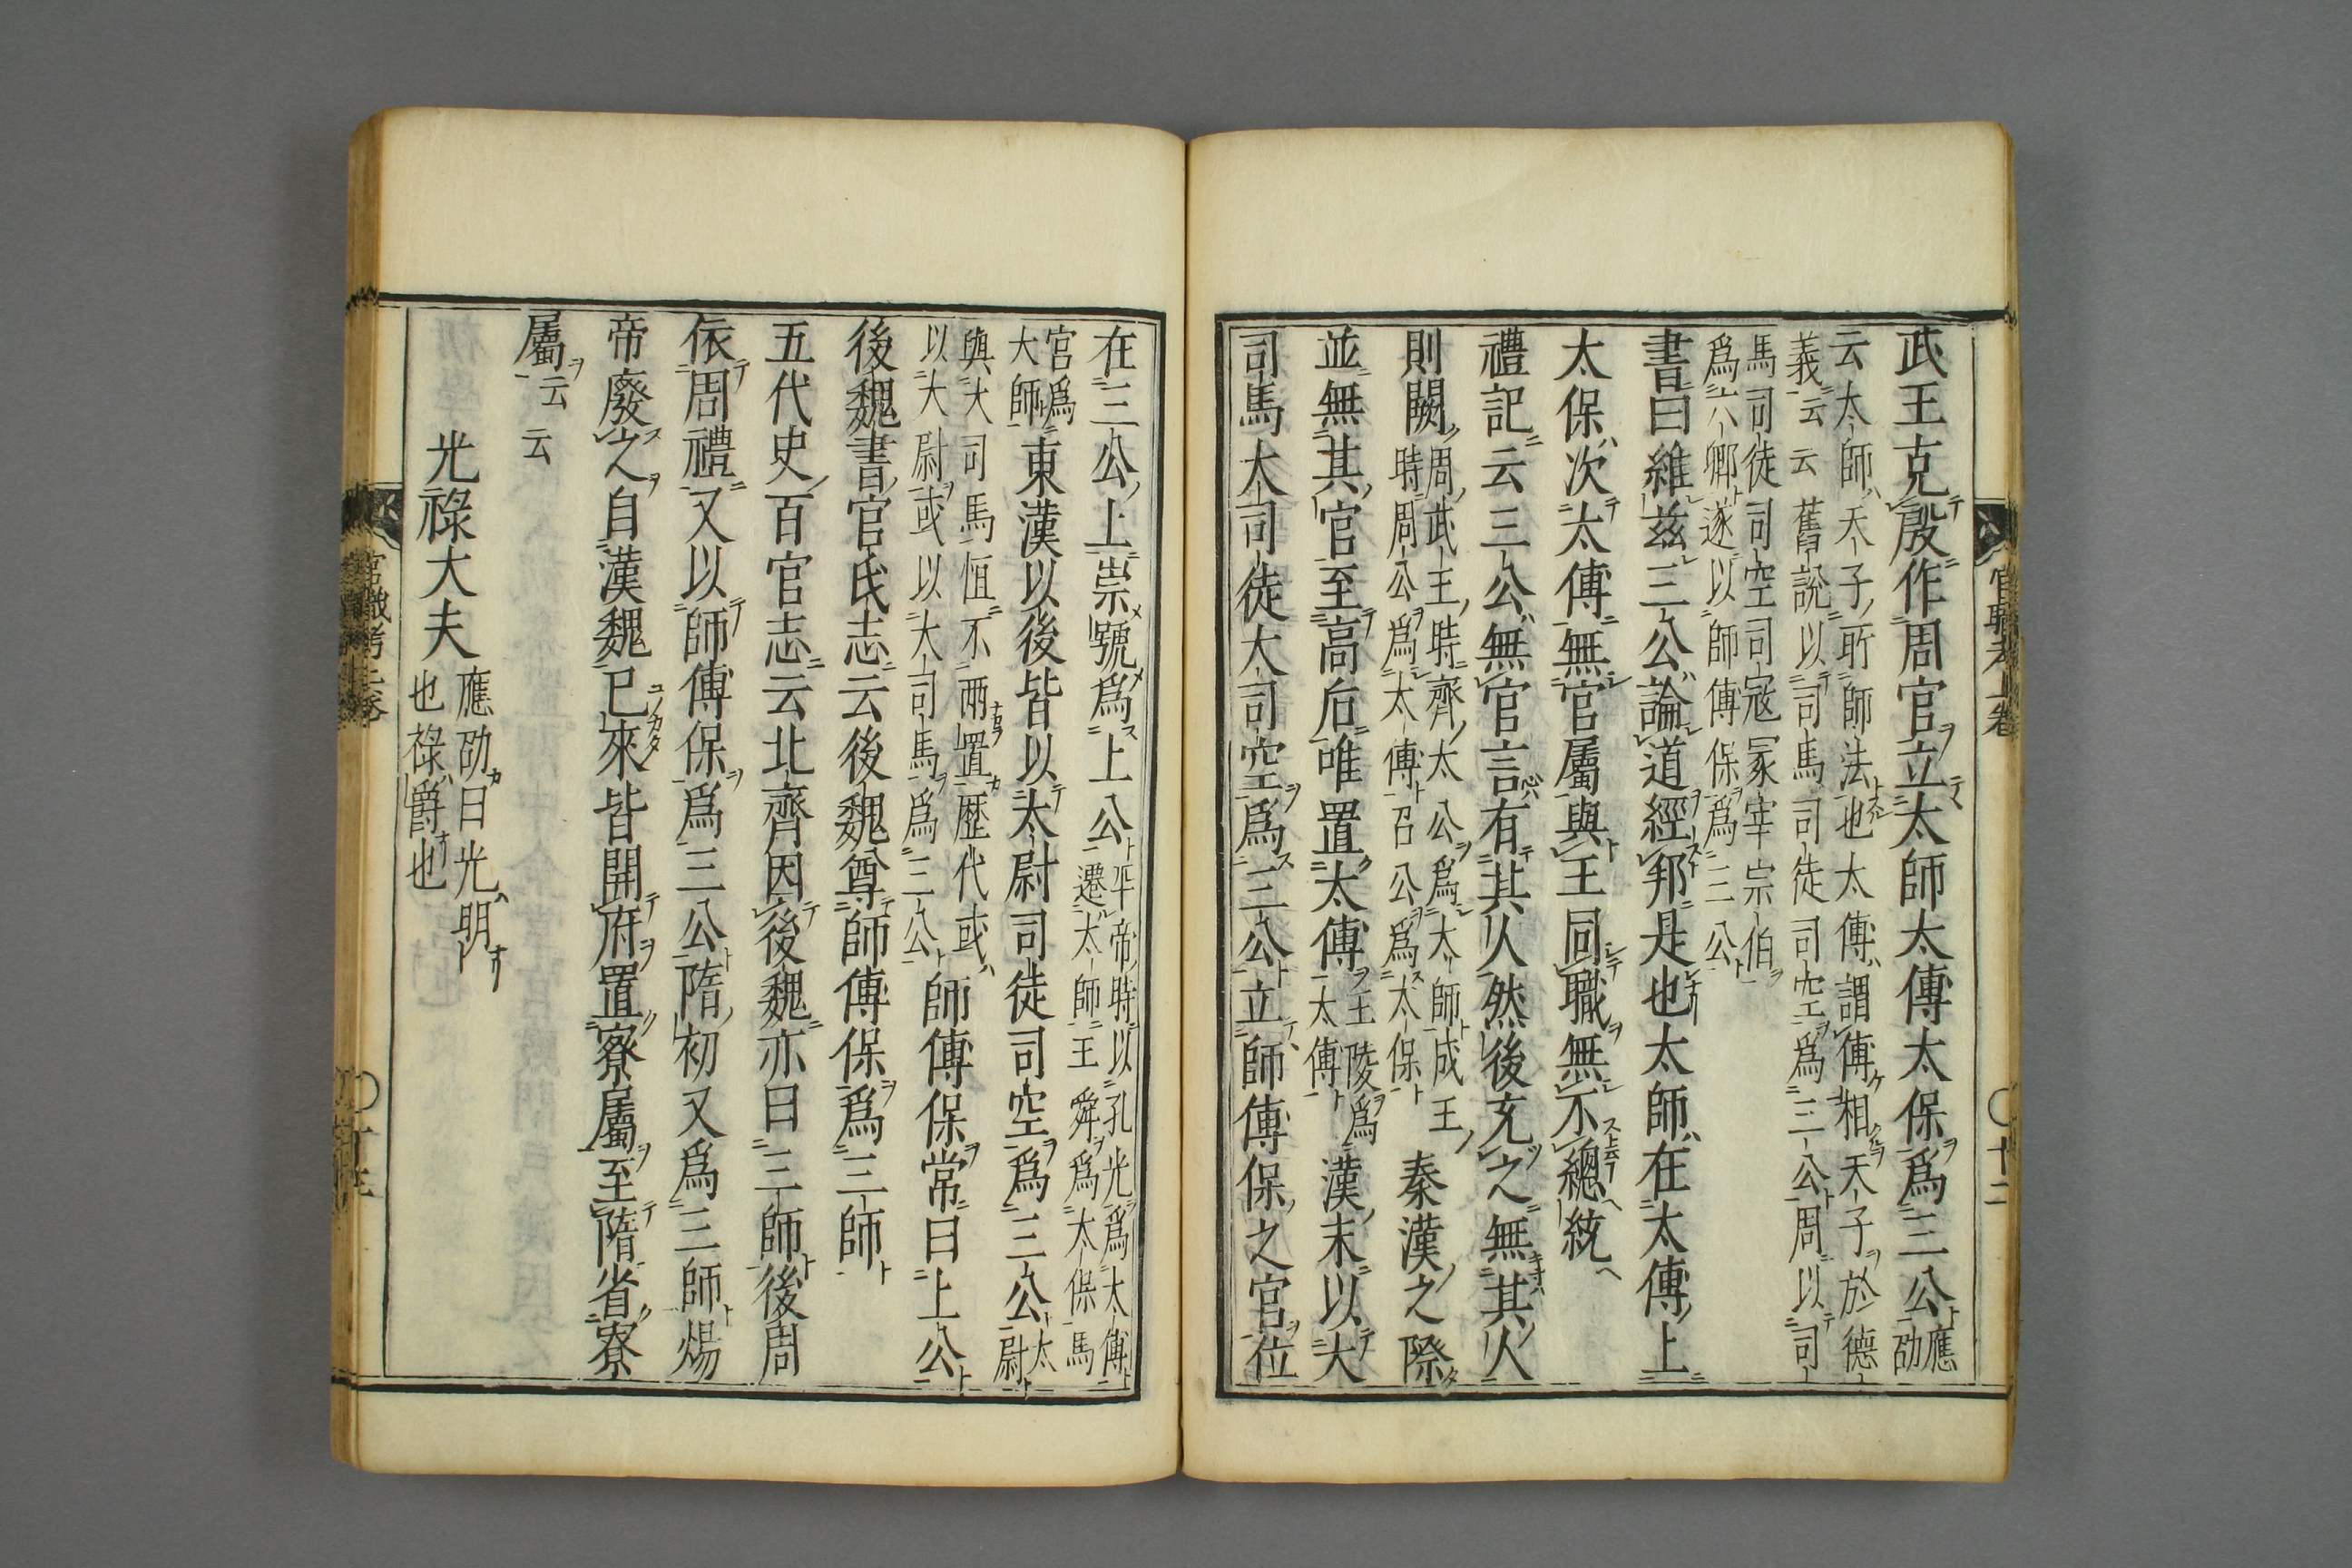 武王克殷作周官立太師太傅太保爲三公應劭
云太師天子所師法也太傅謂傅相天子於德
義云云舊說以司馬司徒司空爲三公周以司
馬司徒司空司寇冢宰宗伯
爲六卿遂以師傅保爲三公
書曰維茲三公論道經邦是也太師在太傅上
太保次太傅無官屬與王同職無不總統
禮記云三公無官言有其人然後充之無其人
則闕周武王時齊太公爲太師成王
時周公爲太傅召公爲太保秦漢之際
並無其官至高后唯置太傅王陵爲
太傅漢末以大
司馬大司徒大司空爲三公立師傅保之官位
官職考上卷
〇十二
在三公上崇號爲上公平帝時以孔光爲太傅
遷太師王舜爲太保馬
宮爲
大師東漢以後皆以太尉司徒司空爲三公太
尉
與大司馬恒不両置歷代或
以大尉或以大司馬爲三公師傅保常曰上公
後魏書官氏志云後魏尊師傅保爲三師
五代史百官志云北齊因後魏亦曰三師後周
依周禮又以師傅保爲三公隋初又爲三師煬
帝廢之自漢魏已來皆開府置寮屬至隋省寮
屬云云
光祿大夫應劭曰光明
也祿爵也
官職考上卷